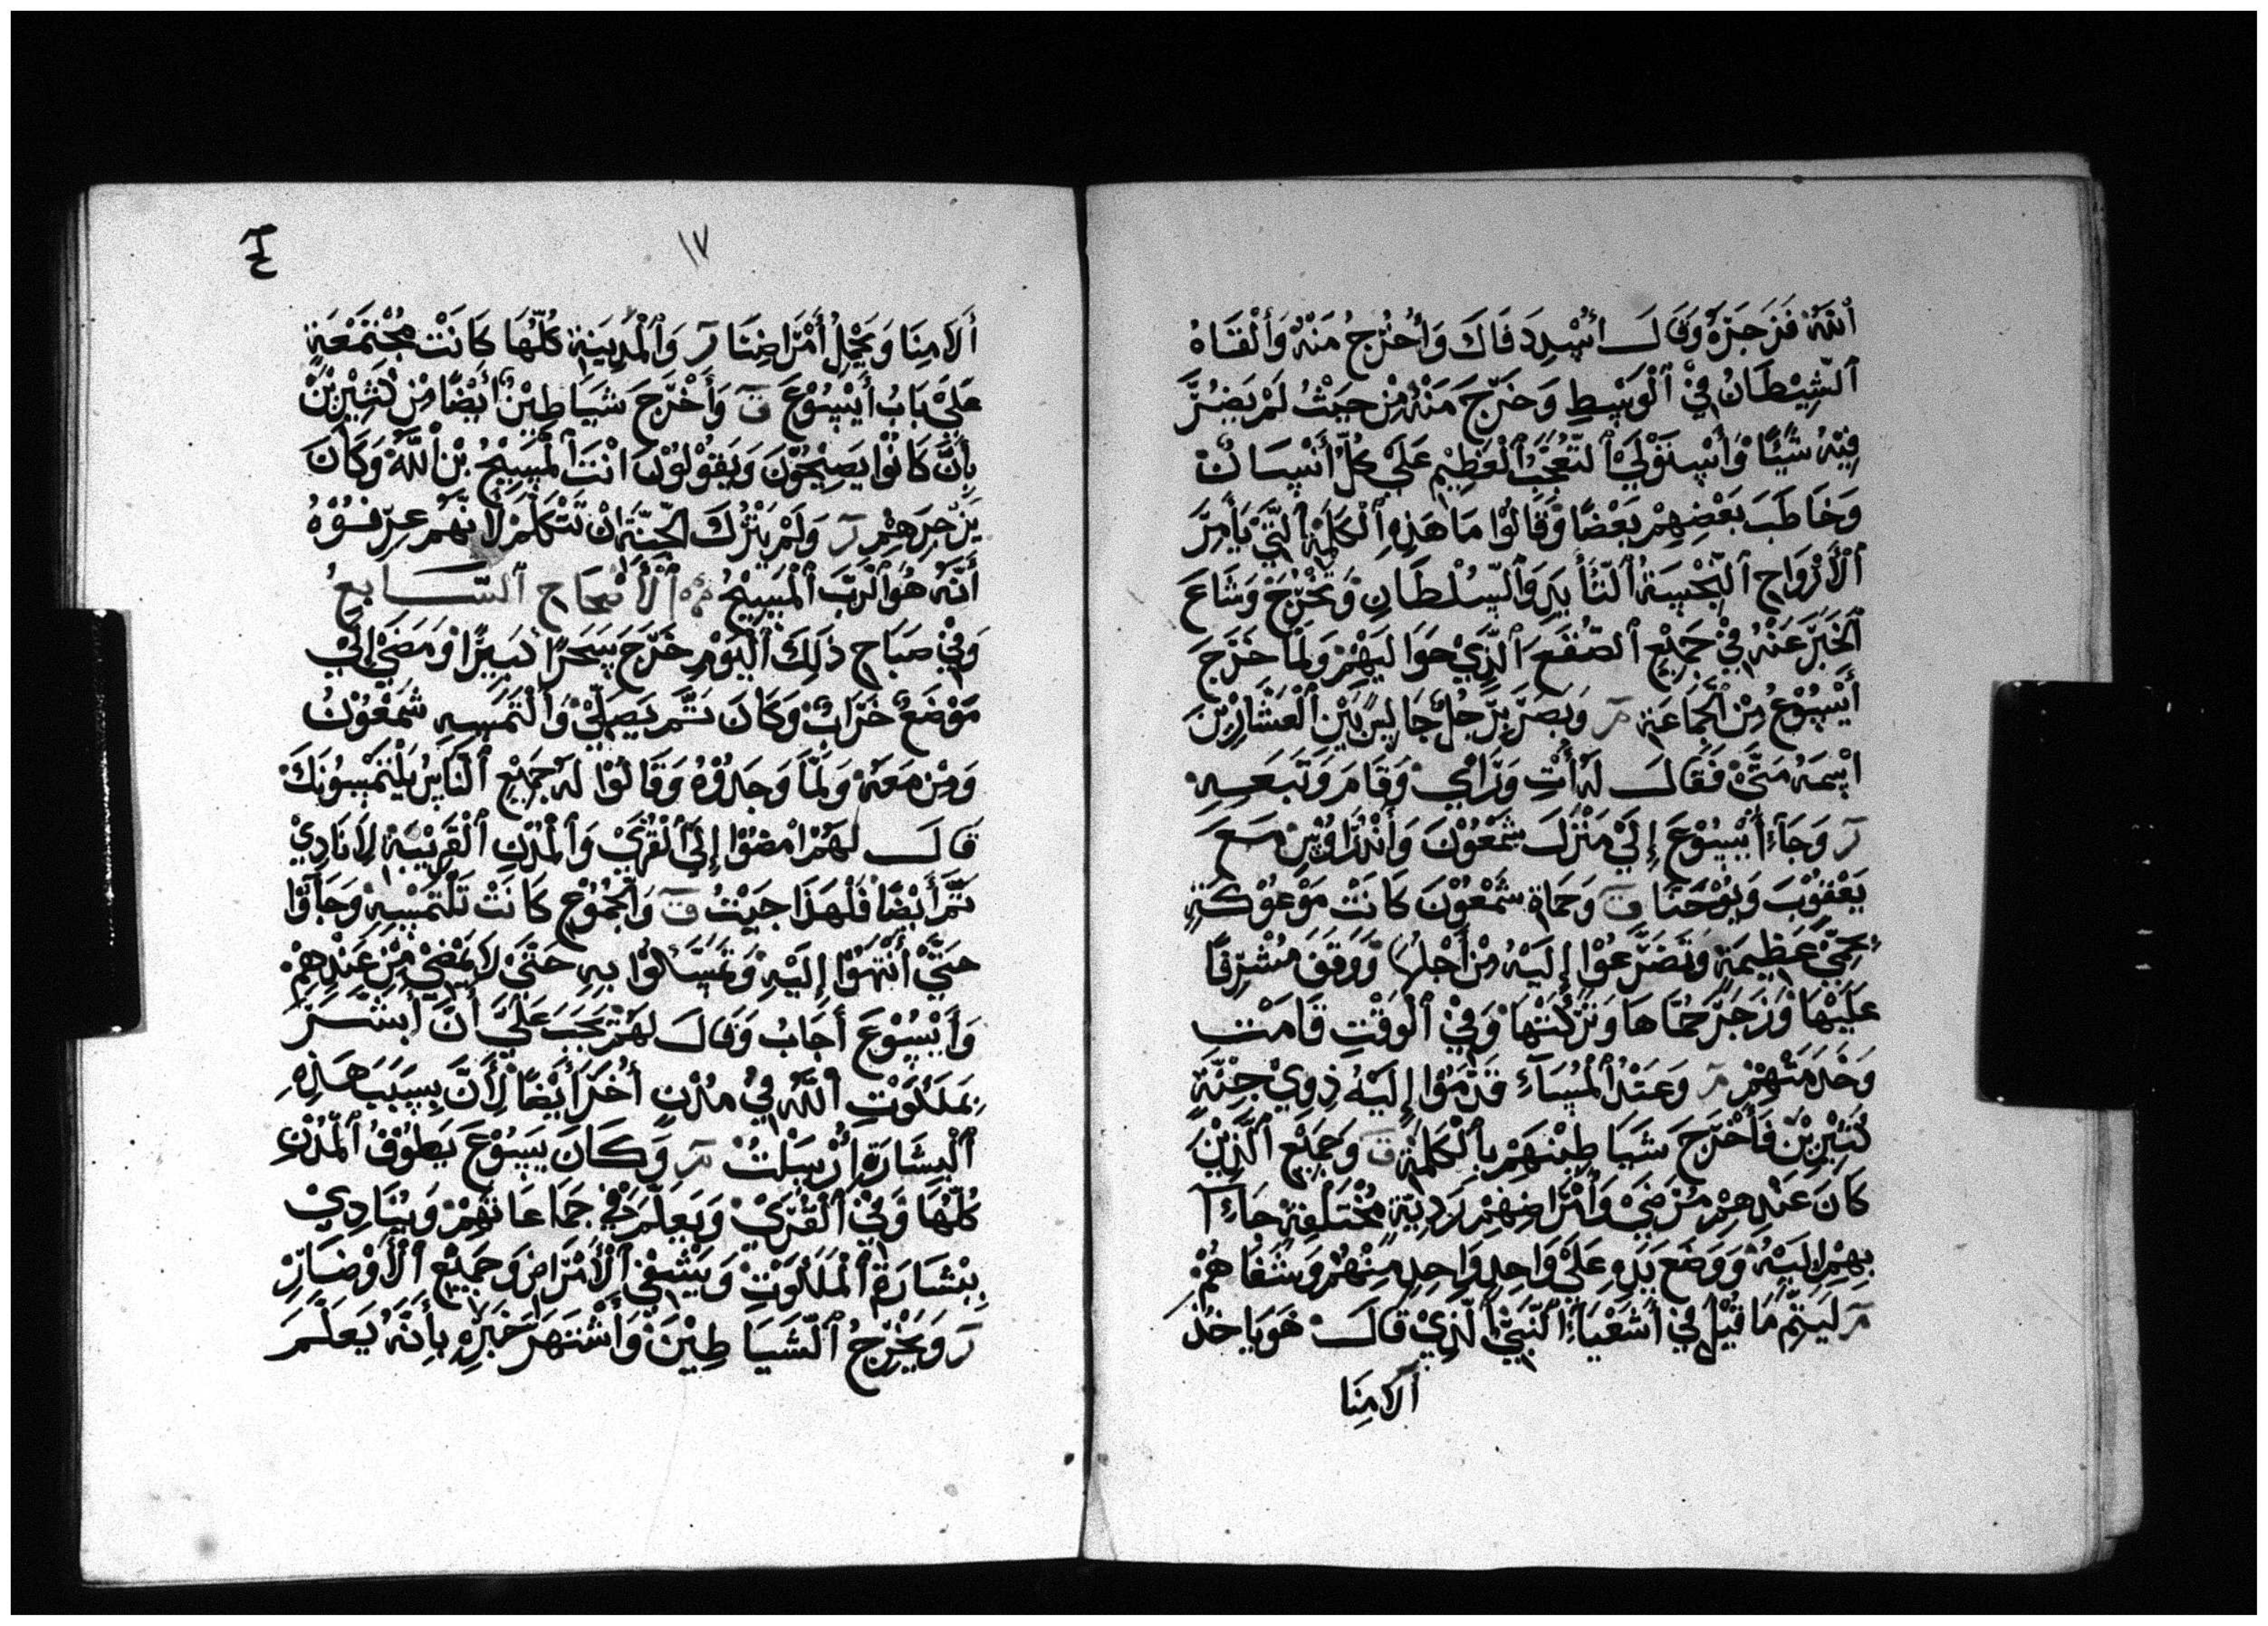 ٱللّٰهْ فَزَجَرَهُ وَقَالَ ٱسْدِدَ فَاكَ وَٱخْرُجُ مَنْهُ وَأَلْقَاهُ
ٱلشِّيْطَانُ فِيْ ٱلْوَسِطِ وَخَرَجَ مَنْهُ مِنْ حَيْثُ لَمْ يَضُرَّ
فِيْهِ شَيًْا وَأَسْتَوْلَيْ ٱلتَّعُجَّبُ ٱلْعَظِيْمِ عَلَيْ كُلِّ أَنْسَانْ
وَخَاطَبَ بَعْضِهِمْ بَعْضًا وَقَالُوْا مَا هَذِهِ ٱلْكَلِمَةُ ٱلَّتِيْ يَأَمِرَ
ٱلْأَرْوَاحِ ٱلنَّجْسَةُ ٱلتَّأْيِيْدِ وَٱلسُّلْطَانِ وَتَخْرُجْ وَشَاعَ
ٱلْخَبَرْ عَنْهُ فِيْ جَمِيْعِ ٱلصُّقَعَ ٱلَّذِيْ حَوَالَيْهُمْ وَلَمَّا خَرَجَ
أَيْسُوْعُ مِنْ ٱلْجَمَاعَةِ مر وَبَصَرَ بِرَّجُلٌ جَالِسٍ بَيْنِ ٱلْعَشَّارِيْنَ
ٱسْمَهُ مَتَّيْ فَقَالَ لَهُ أَتِ وَرَائِيْ وَقَامَ وَتَبَعَهِ
ر وَجَآءِ أَيْسُوْعَ إِلَيْ مَنْزَلَ شَمْعُوْنَ وَأَنْدَرَاوُسِ مَعَ
يَعْقُوْبَ وَيُوْحَنَّا ق وَحَمَاةِ شَمْعُوْنَ كَانَتْ مَوْعُوْكَةٍ
بِحُمَّيْ عَظِيْمَةٍ وَتَضَرَّعُوْا إِلَيْهُ مِنْ أَجْلِهَا وَوَقَفَ مُشْرِفًا
عَلَيْهَا وَزَجَرَ حُمَّاهَا وَتَرَكَتْهَا وَفِيْ ٱلْوَقْتِ قَامَتْ
وَخَدَمَتْهُمْ مر وَعَنْدُ ٱلْمَسَآءِ قَدَّمُوْا إِلَيْهُ ذِوِيْ جِنَّةٍ
كَثِيْرِيْنَ فَأَخْرَجَ شَيَاطِيْنَهُمْ بِٱلْكَلِمَةِ ق وَجَمِيْعِ ٱلَّذِيْنَ
كَانَ عَنْدِهِمْ مُرْضَيْ وَأَمْرَاضِهُمْ رَدِيَّةٍ مُخْتَلَفَةْ جَآءِاْ
بِهِمْ إِلَيْهُ وَوَضَعَ يَدِهِ عَلَيْ وَاحِدٍ وَاحِدٍ مِنْهُمْ وَشَفَاهُمْ
مر لَيَتِمَّ مَا قِيْلَ فِيْ أَشَعْيَآءِ ٱلنَّبِيْ ٱلَّذِيْ قَالَ هَوَ يَاخُذُ
أَلَامِنَا
١٧
أَلَامِنَا وَيَحْمِلُ أَمْرَاضِنَا ر وَٱلْمَدِيْنَةِ كُلِّهَا كَانَتْ مُجْتَمْعَةٍ
عَلَيْ بَابُ أَيْسُوْعَ ق وَأَخْرَجَ شَيَاطِيْنٍ أَيْضًا مِنْ كَثِيْرِيْنَ
بِأَنَّ كَانُوْا يَصِيْحُوْنَ وَيَقُوْلُوْنَ ٱنْتَ ٱلْمَسِيْحُ بْنْ ٱللّٰهْ وَكَانَ
يَزْجِرَهِمْ ر وَلَمْ يَتْرُكَ ٱلْجِنَّةِ ٱنْ تَتَكَلَّمْ لَأَنَّهُمْ عِرَفُوْهُ
أَنَّهُ هُوَ ٱلْرَبَّ ٱلْمَسِيْحُ ٱلْأَصْحَاحِ ٱلسَّابِعُ
وَفِيْ صَبَاحِ ذَلِكَ ٱلْيَوْمِ خَرَجَ سَحَرًا كَبِيْرًا وَمَضَيْ إِلَيْ
مَوْضَعٌ خَرَابٌ وَكَانَ تَمَّ يَصَلِّيْ وَٱلْتَمَسِهِ شَمْعُوْنُ
وَمِنْ مَعَهْ وَلَمَّا وَجَدُوْهُ وَقَالُوْا لَهُ جَمِيْعِ ٱلْنَاسُ يَلْتَمْسُوْنَكَ
قَالَ لَهُمْ ٱمْضُوْا إِلَيْ ٱلْقُرَيْ وَٱلْمُدْنِ ٱلْقَرِيْبَةْ لِأَنَادِيْ
تَمَّ أَيْضًا فَلْهَذَا جَيْتُ ق وَٱلْجُمُوْعِ كَانَتْ تَلْتَمْسِهْ وَجَآؤْا
حَتَّيْ أَنْتَهَوْا إِلَيْهِ وَتَمَسَّكُوْا بِهِ حَتَّيْ لَا يَمْضِيْ مِنْ عَنْدِهِمْ
وَأَيْسُوْعَ أَجَابُ وَقَالَ لَهُمْ يَجَبَ عَلَيَّ أَنَّ أَبَشَّرَ
بِمَلَكُوْتِ ٱللّٰهِ فِيْ مُدْنِ أُخَرَ أَيْضًا لِأَنَّ بِسَبَبَ هَذِهِ
ٱلْبِشَارَةِ أُرْسَلْتُ مر وَكَانَ يَسُوْعَ يَطُوْفُ ٱلْمُدْنِ
كُلِّهَا وَفِيْ ٱلْقُرَيْ وَيَعَلِّمَ فِيْ جَمَاعَاتَهِمْ وَيُنَادِيْ
بِبْشَارَةِ ٱلْمَلَكُوْتِ وَيَشْفِيْ ٱلْأَمْرَاضِ وَجَمِيْعِ ٱلْأَوْضَارِ
ر وَيُخْرِجُ ٱلشَّيَاطِيْنَ وَأَشْتَهَرَ خَبَرِهِ بِأَنَّهُ يَعَلِّمَ